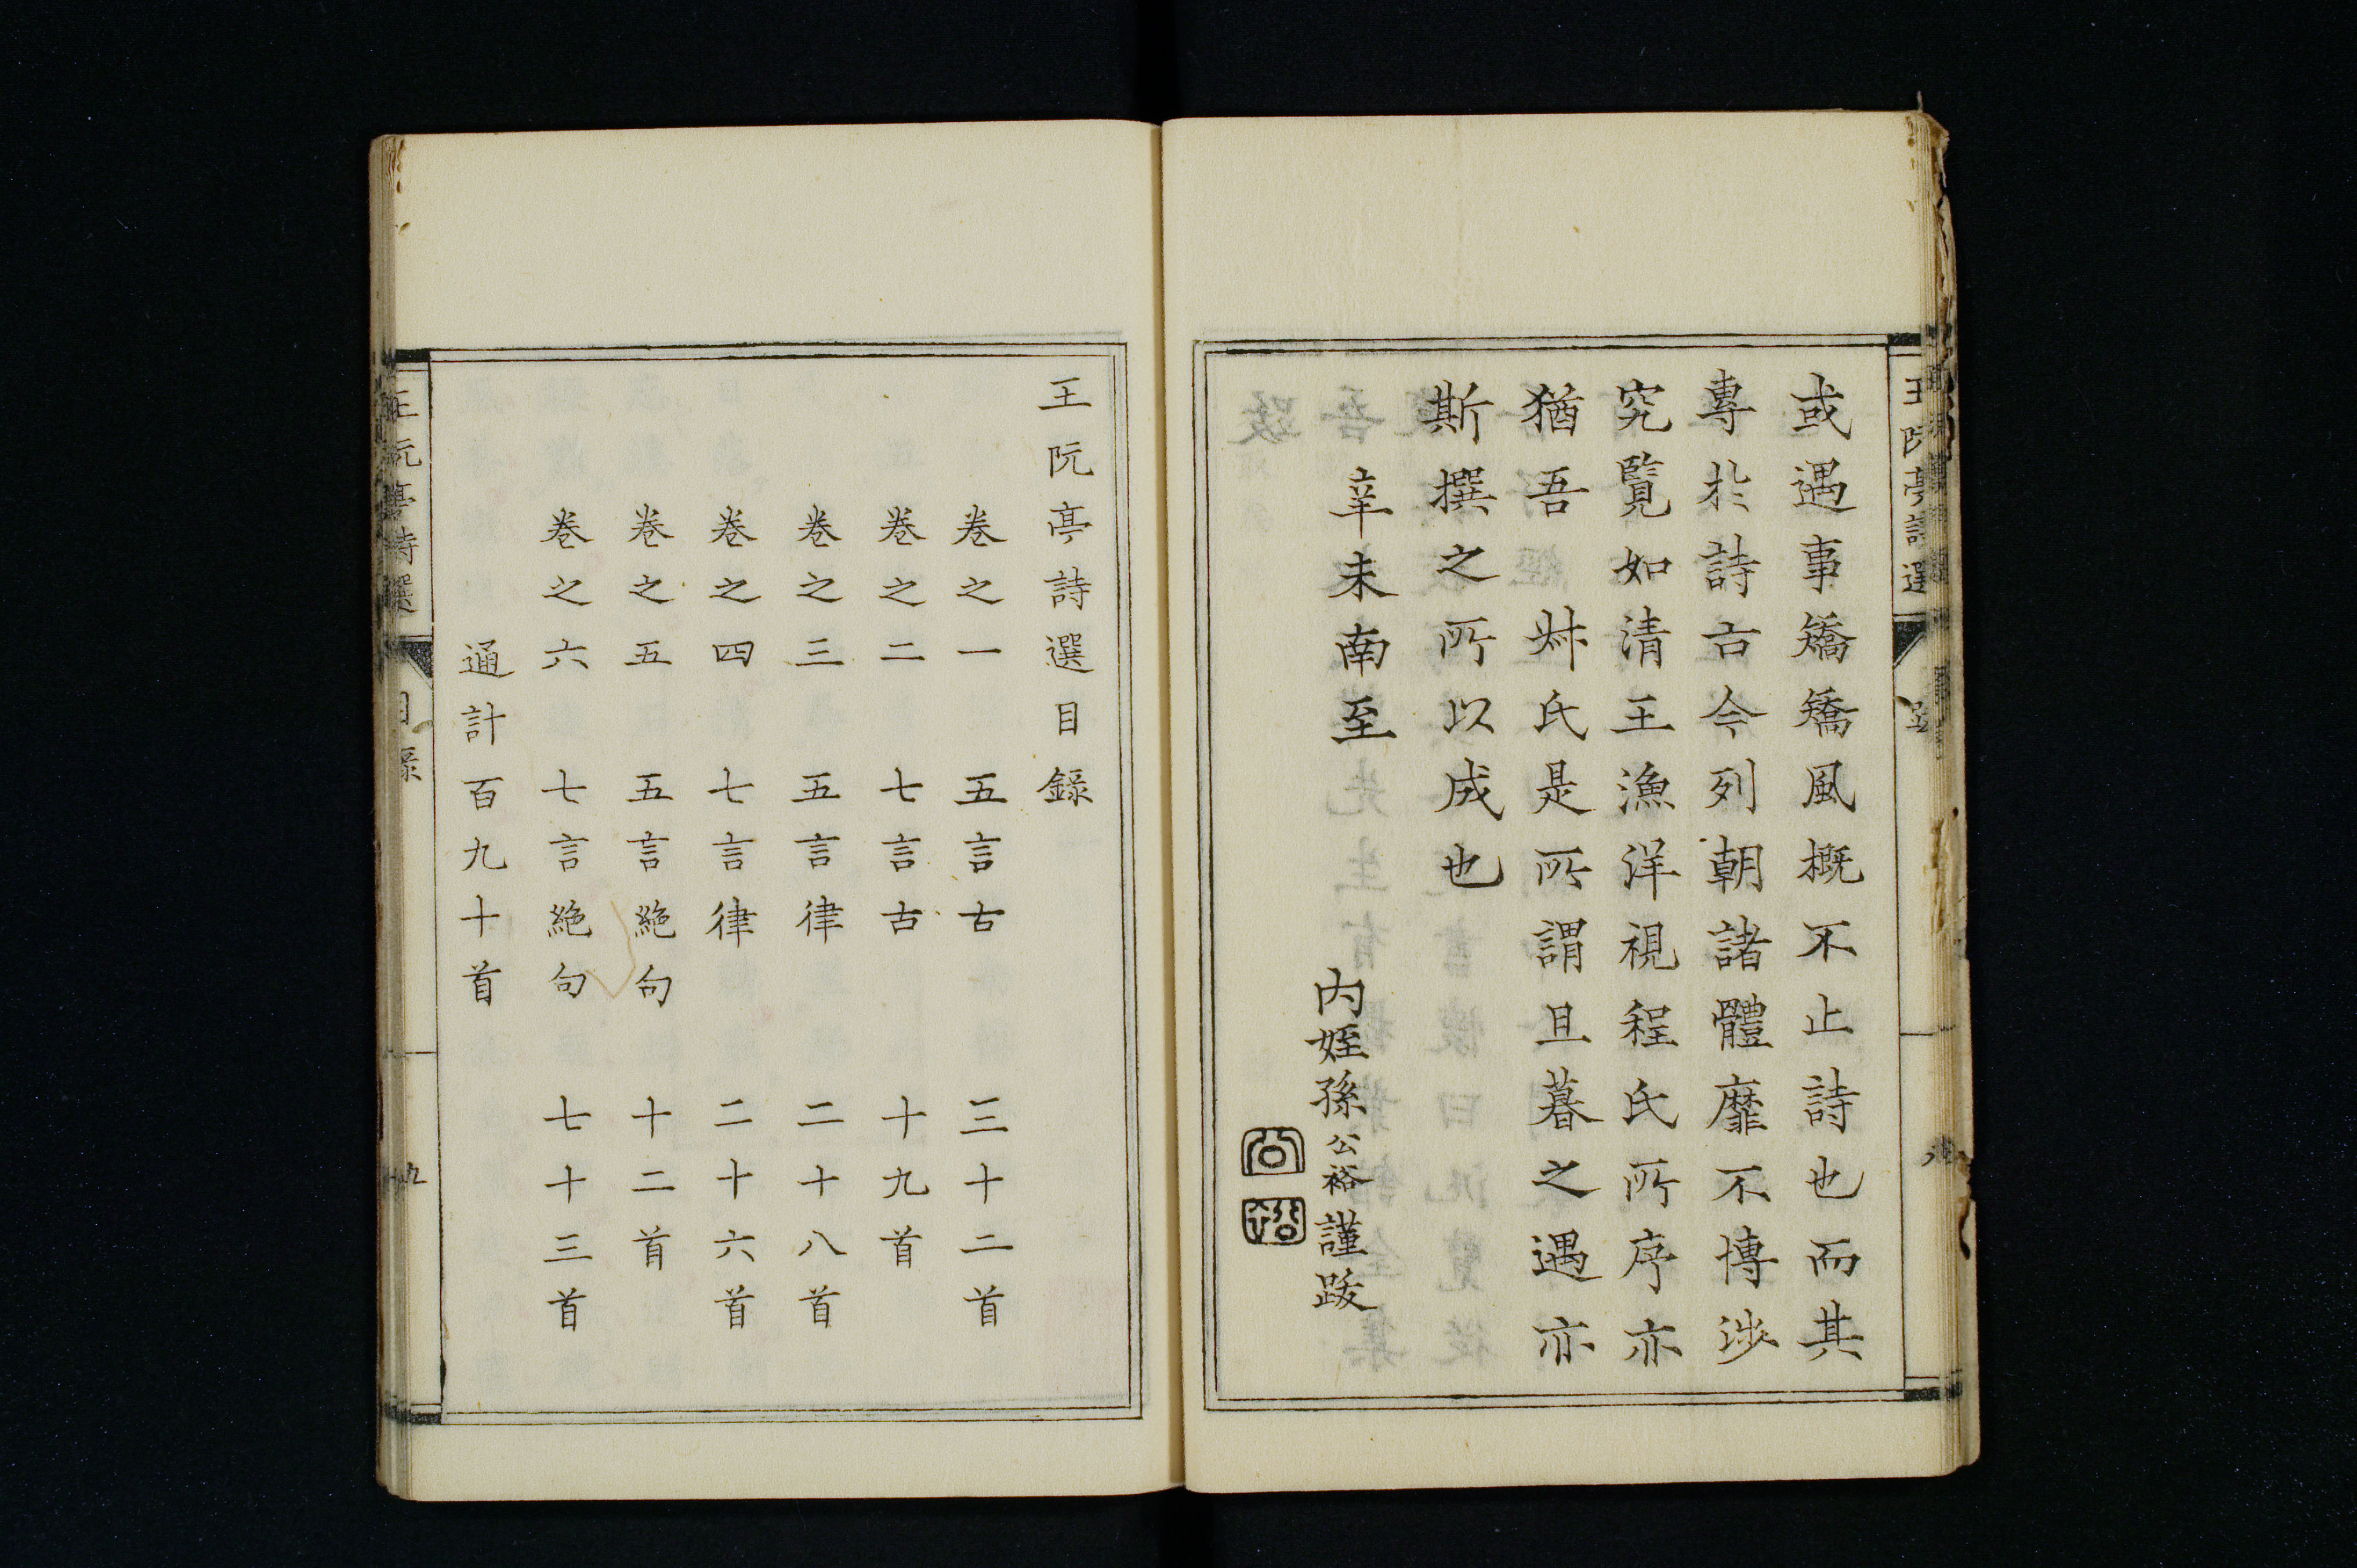 或遇事矯矯風概不止詩也而其
專於詩古今列朝諸體靡不博涉
究覽如清王漁洋視程氏所序亦
猶吾叔氏是所謂旦暮之遇亦
斯撰之所以成也
辛未南至
內姪孫公裕謹跋
公
裕
王阮亭詩選目錄
卷之一 五言古 三十二首
卷之二 七言古 十九首
卷之三 五言律 二十八首
卷之四 七言律 二十六首
卷之五 五言絶句 十二首
卷之六 七言絶句 七十三首
通計百九十首
王阮亭詩選 目錄 九